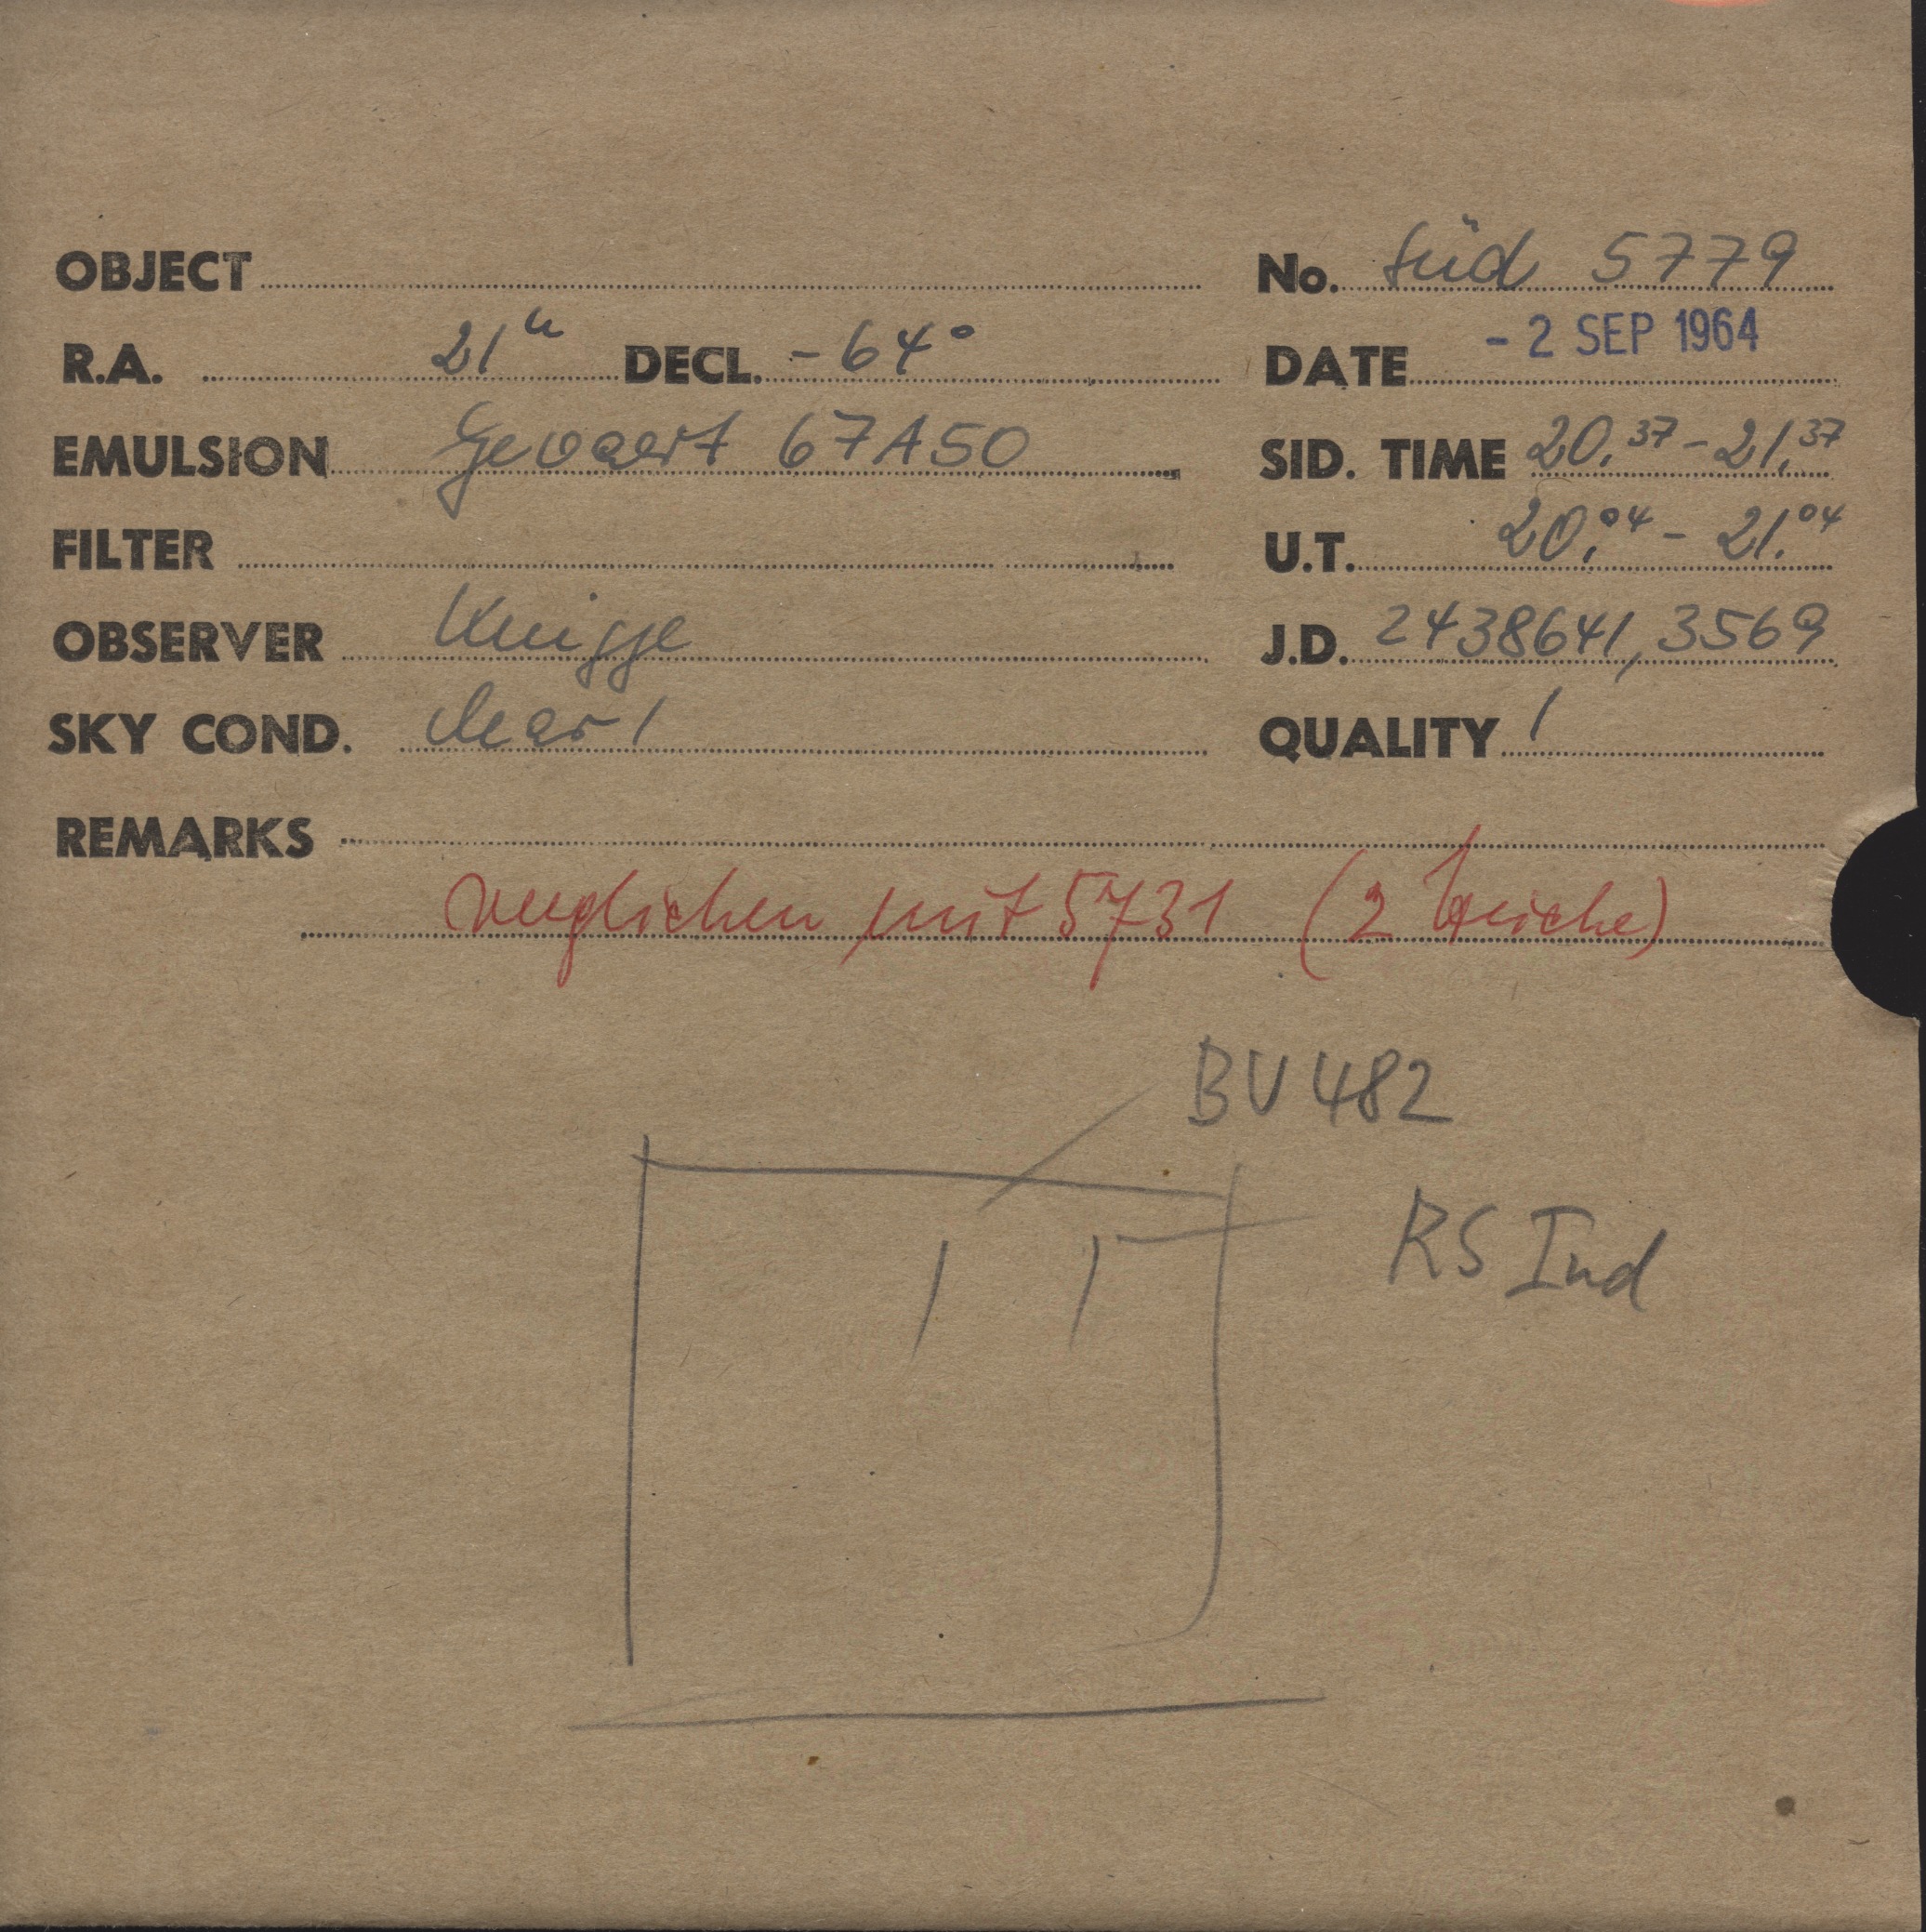 OBJECT No. Süd 5779
R.A. 21h DECL. -64° DATE - 2 SEP 1964
EMULSION Gevaert 67A50 SID. TIME 20.37 - 21.37
FILTER U.T. 20.04 - 21.04
OBSERVER Knigge J.D. 2438641,3569
SKY COND. clear 1 QUALITY 1
REMARKS
verglichen mit 5731 (2
BV 482
RS Ind